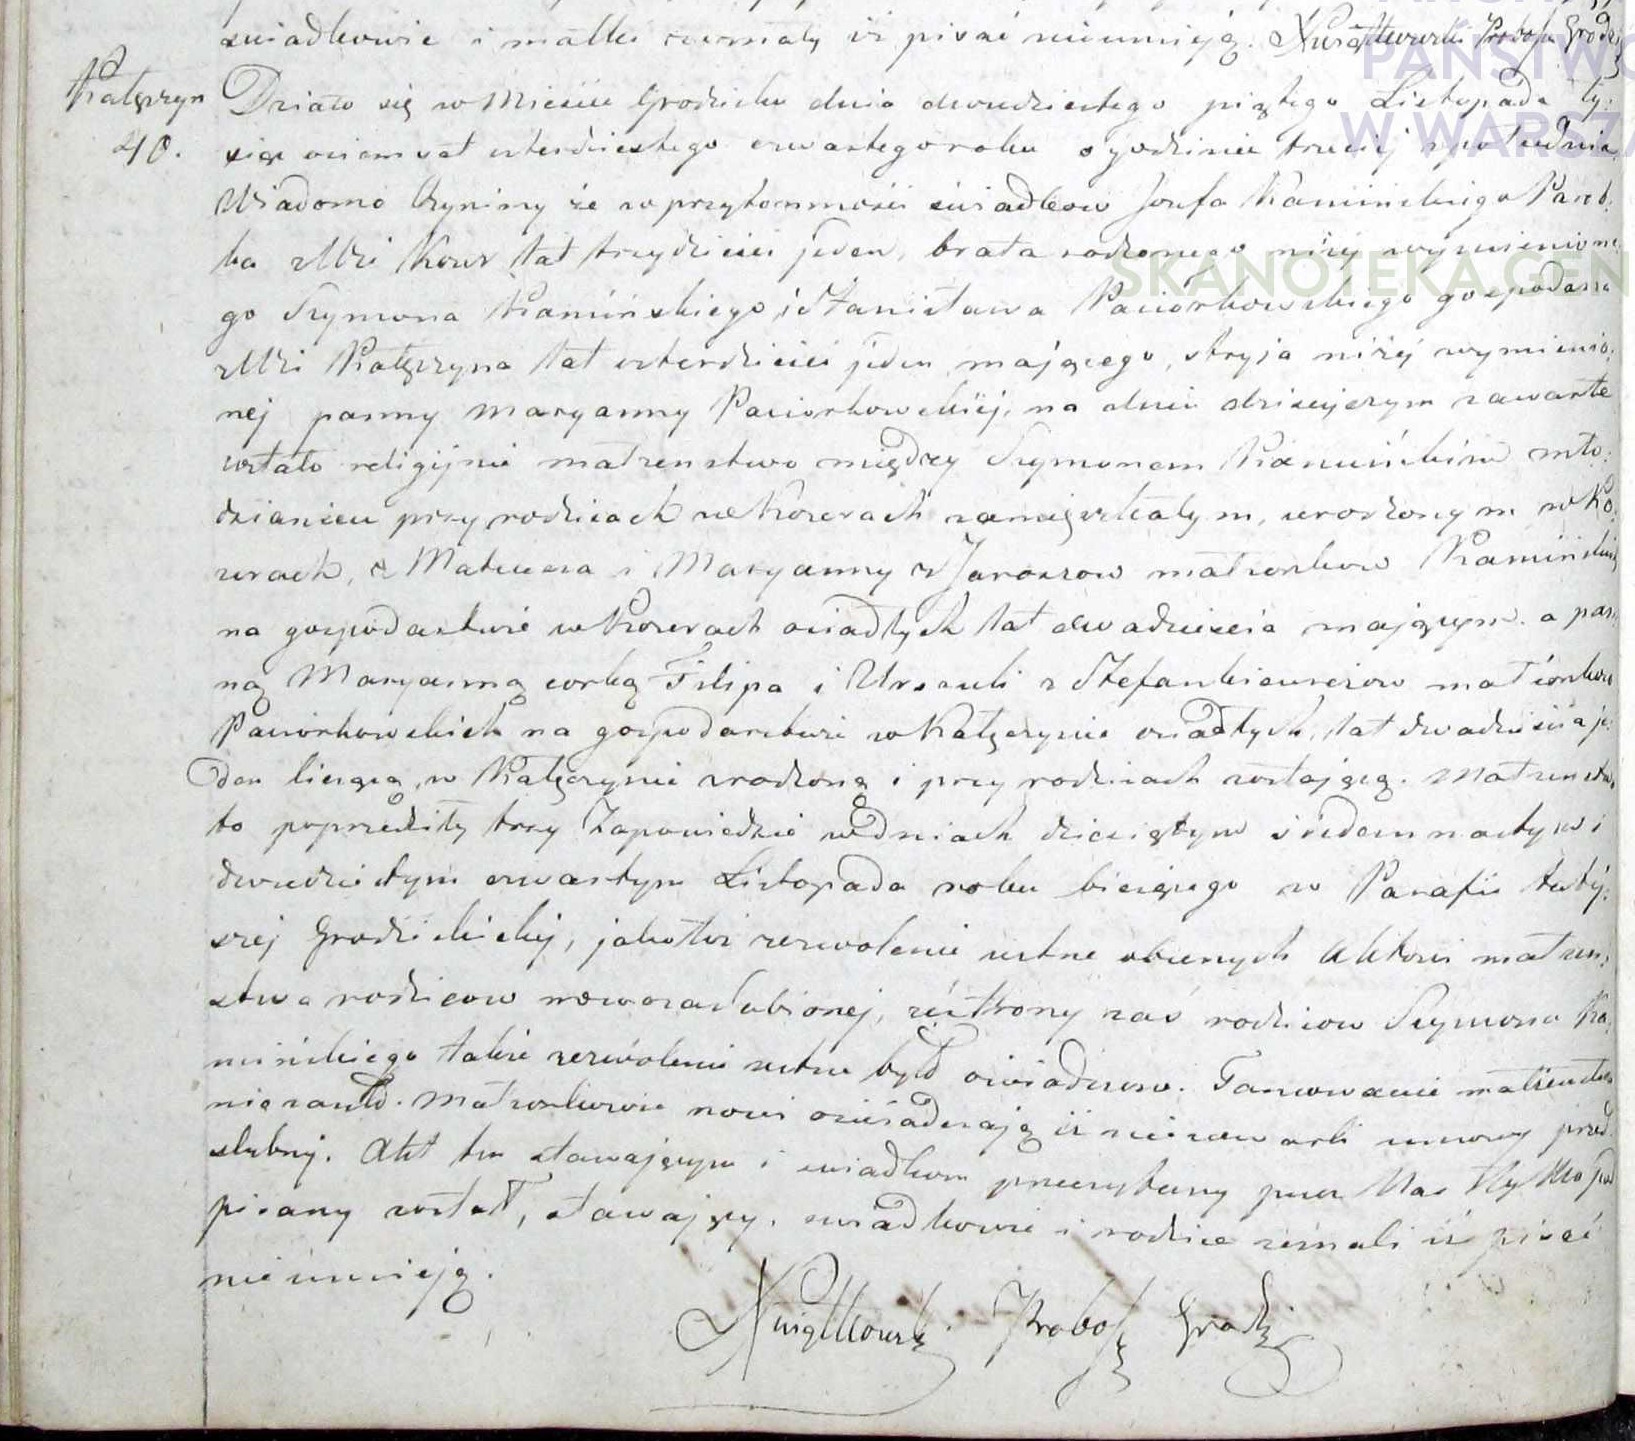 świadkowie i matka zeznały iż pisać nieumieją. XKwiatkowski Probosz Grodzi
Kałęczyn
40.
Działo się w Mieście Grodzisku dnia dwudziestego piątego Listopada ty:
siąc osiemset czterdziestego czwartego roku o godzinie trzeciej z południa
Wiadomo Czynimy że w przytomności świadków Jozefa Kamińskiego Parob:
ka z Wsi lat trzydzieści jeden, brata rodzonego niżej wymienione
go Szymona Kamińskiego, i Stanisława Paciorkowskiego gospodarza
z Wsi Kałęczyna lat czterdzieści jeden mającego, stryja niżej wymienio:
nej panny Maryanny Paciorkowskiéj, na dniu dzisiejszym zawarte
zostało religijnie małżeństwo między Szymonem Kamińskim mło:
dzianem przy rodzicach we Kozerach zamięszkałym, urodzonym w Ko:
zerach, z Mateusza i Maryanny z Jaroszow małżonkow Kamińskich
na gospodarstwie w Kozerach osiadłych lat dwadzieścia mającym. a pan:
ną Maryanną corką Filipa i Urszuli z Stefankiewiczow małżonkow
Paciorkowskich na gospodarstwie w Kałęczynie osiadłych, lat dwadzieścia je:
den licząca, w Kałęczynie zrodzoną i przy rodzicach zostającą. Małżenstwo
to poprzedziły trzy Zapowiedzie w dniach dziesiątym siedemnastym i
dwudziestym czwartym Listopada roku bieżącego w Parafii tutej:
szej Grodziskiej, jakoteż zezwolenie ustne obecnych Aktowi małżen:
stwa rodzicow nowozaslubionej, ze strony zaś rodzicow Szymona Ka:
mińskiego takie zezwolenie ustne było oświadczone. Tamowanie małżeństwa
niezaszło. Małżonkowie nowi oświadczają iż niezawarli umowy przed
slubnej. Akt ten stawającym i świadkom przeczytany przez Nas tylko pod
pisany został, stawający, świadkowie i rodzice zeznali iż pisać
nieumieją.
XKwiatkowski Probosz Grodzi
PAŃSTWO
W WARSZA
SKANOTEKA.GEN